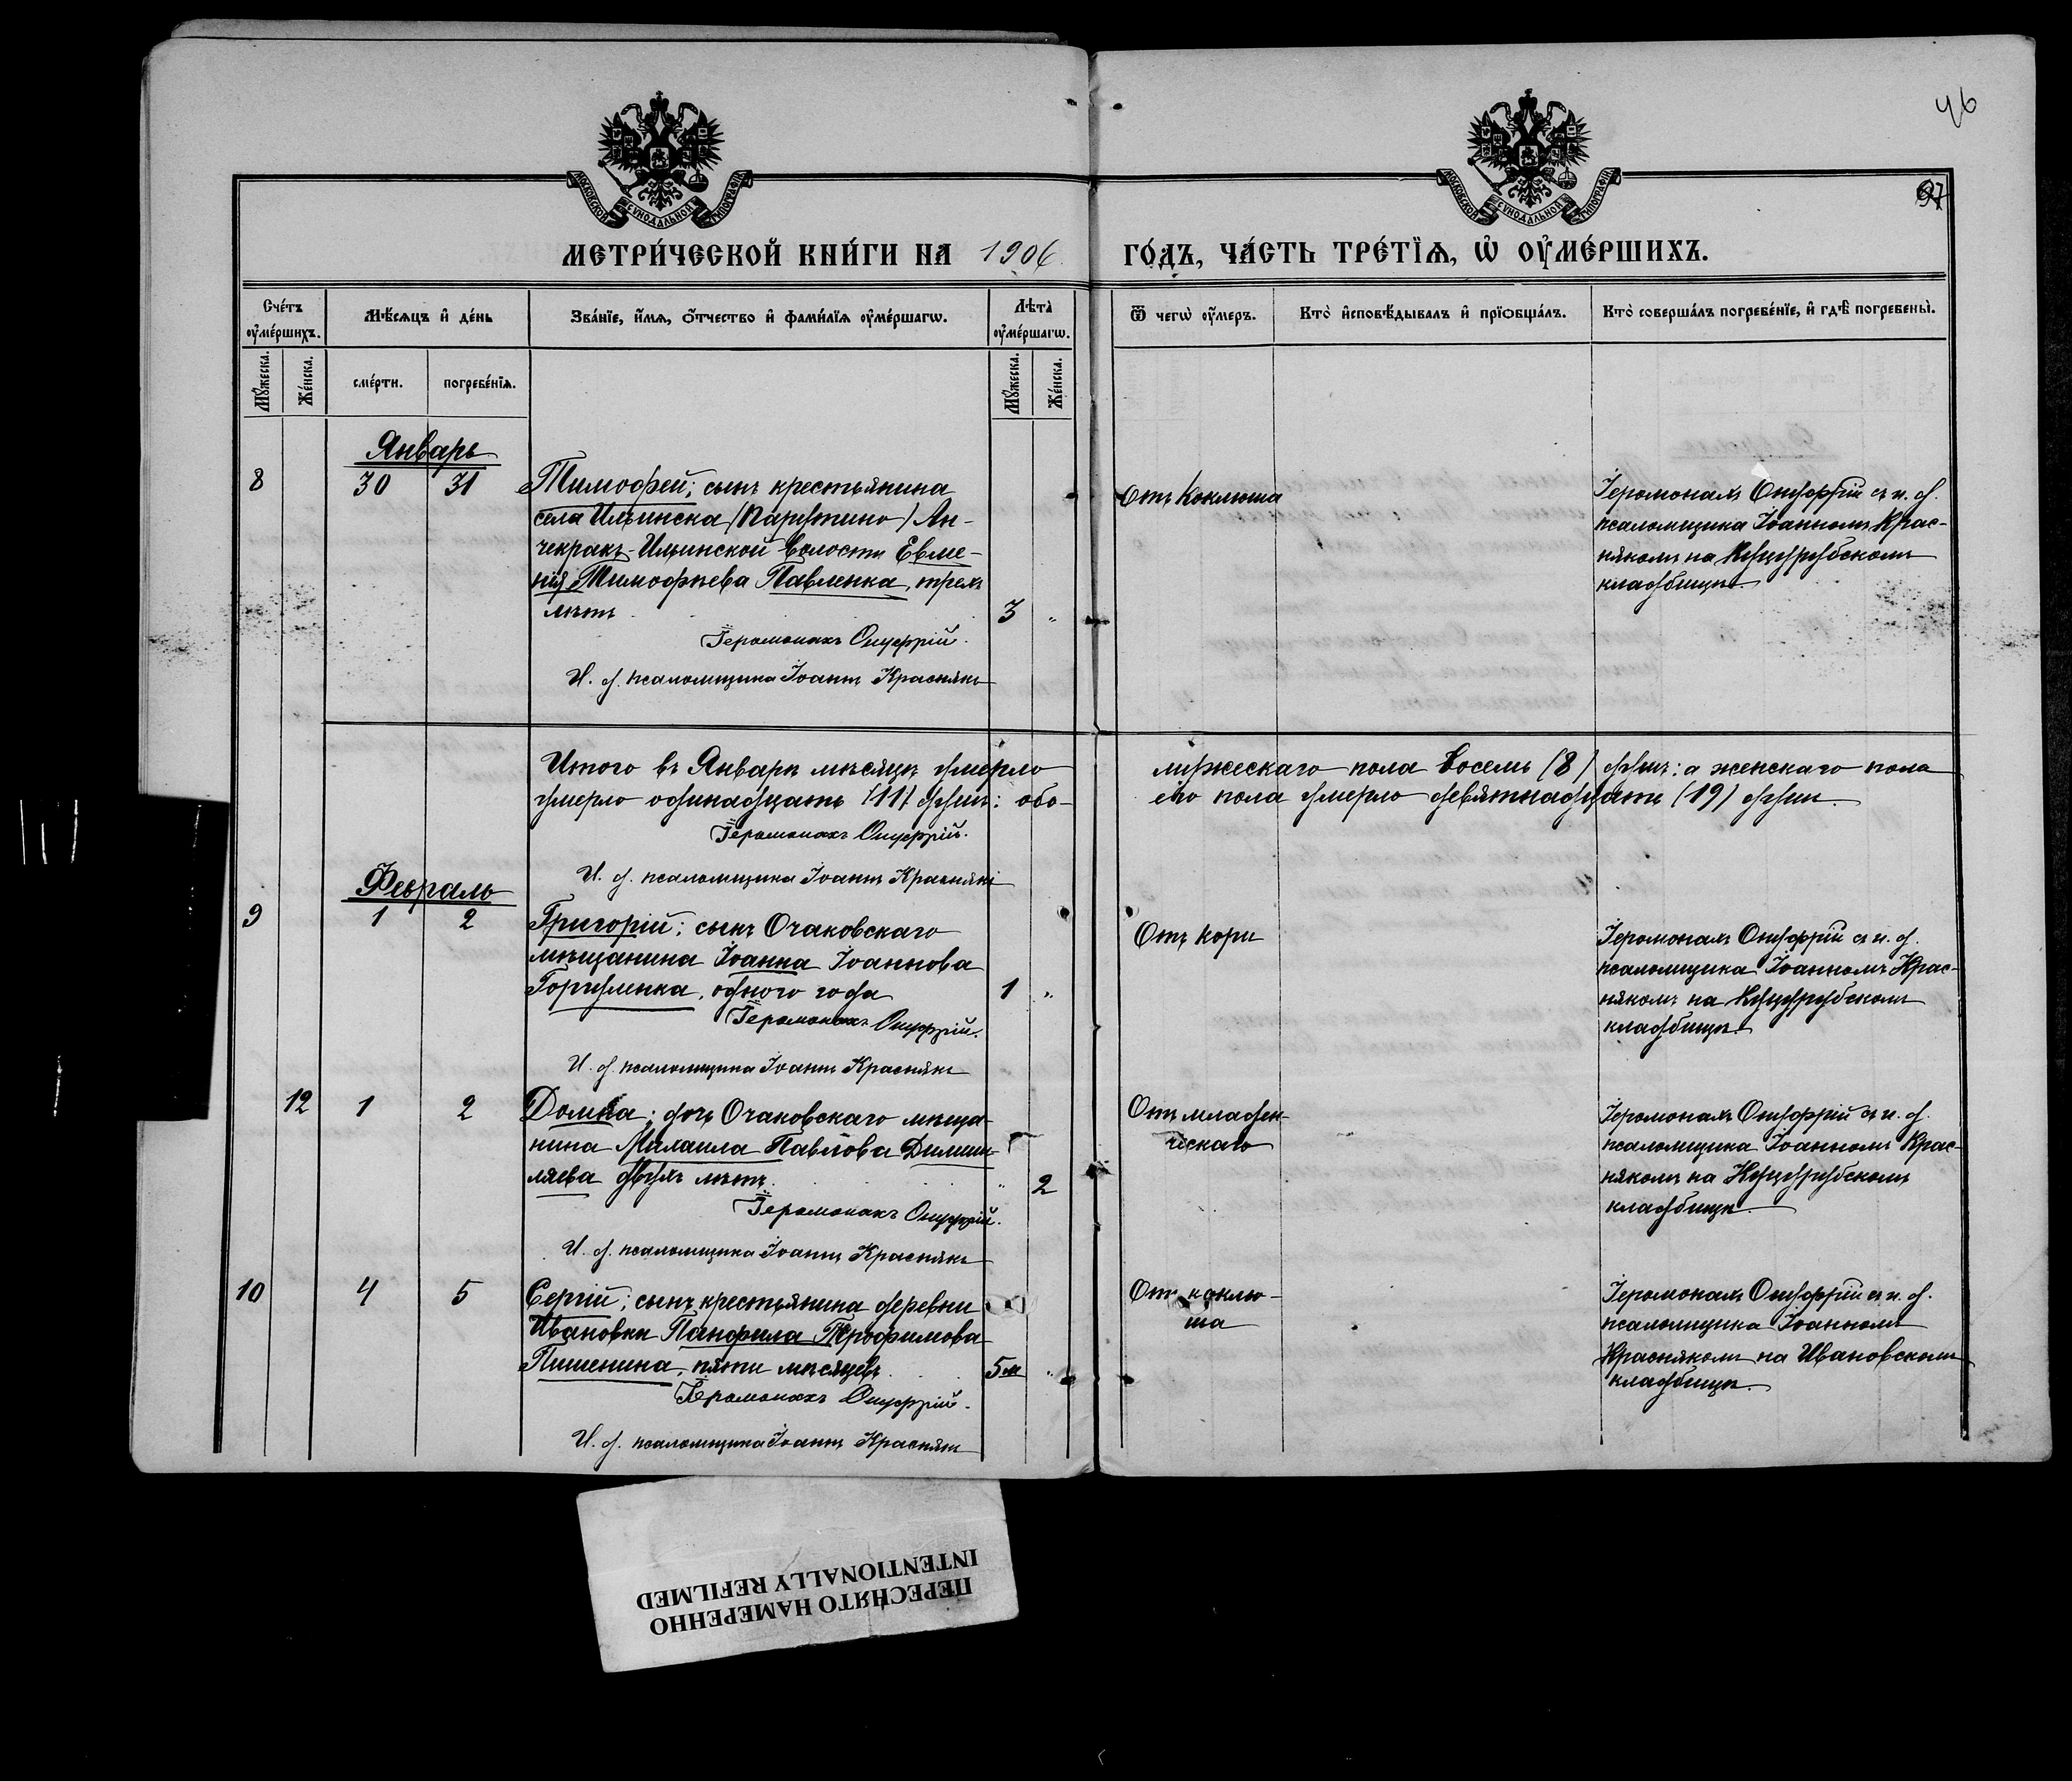 46
97
МОСКОВСКОЙ СѴНОДАЛЬНОЙ ТИПОГРАФІИ
МОСКОВСКОЙ СѴНОДАЛЬНОЙ ТИПОГРАФІИ
МЕТРИ́ЧЕСКОЙ КНИ́ГИ НА 1906 ГО́ДЪ, ЧА́СТЬ ТРЕ́ТЇѦ, Ѡ҆ ОУ҆МЕ́РШИХЪ.
Сче́тъ оу҆ме́ршихъ.
Мѣ́сѧцъ и҆ де́нь
Зва́нїе, и҆́мѧ, ѻ҆́тчество и҆ фами́лїѧ оу҆ме́ршагѡ.
Лѣта̀ оу҆ме́ршагѡ.
Ѿ чегѡ̀ оу҆́меръ.
Кто̀ и҆сповѣ́дывалъ и҆ прїѡбща́лъ.
Кто̀ соверша́лъ погребе́нїе, и҆ гдѣ̀ погребены̀.
Мꙋ́жеска.
Же́нска.
сме́рти.
погребе́нїѧ.
Мꙋ́жеска.
Же́нска.
Январь
8 30 31 Тимофей; сынъ крестьянина
села Ильинска (Парутино) Ан-
чекракъ-Ильинской волости Евме-
нія Тимофѣева Павленка, трехъ
лѣтъ 3 "
Іеромонахъ Онуфрій.
И. д. псаломщика Іоаннъ Краснякъ
Отъ коклюша
Іеромонахъ Онуфрій съ и. д.
псаломщика Іоанномъ Крас-
някомъ на Куцурубскомъ
кладбищѣ.
Итого въ Январѣ мѣсяцѣ умерло мужескаго пола восемь (8) душъ; а женскаго пола
умерло одинадцать (11) душъ; обо- его пола умерло девятнадцать (19) душъ.
Іеромонахъ Онуфрій.
И. д. псаломщика Іоаннъ Краснякъ
Февраль
9 1 2 Григорій; сынъ Очаковскаго
мѣщанина Іоанна Іоаннова
Горпуленка, одного года 1 "
Іеромонахъ Онуфрій.
И. д. псаломщика Іоаннъ Краснякъ
Отъ кори
Іеромонахъ Онуфрій съ и. д.
псаломщика Іоанномъ Крас-
някомъ на Куцурубскомъ
кладбищѣ.
12 1 2 Домна; дочь Очаковскаго мѣща-
нина Михаила Павлова Дилиш-
ляева двухъ лѣтъ. " 2
Іеромонахъ Онуфрій.
И. д. псаломщика Іоаннъ Краснякъ
Отъ младен-
ческаго
Іеромонахъ Онуфрій съ и. д.
псаломщика Іоанномъ Крас-
някомъ на Куцурубскомъ
кладбищѣ.
10 4 5 Сергій; сынъ крестьянина деревни
Ивановки Панфила Трофимова
Пишенина, пяти мѣсяцевъ. 5м "
Іеромонахъ Онуфрій.
И. д. псаломщика Іоаннъ Краснякъ
Отъ коклю-
ша
Іеромонахъ Онуфрій съ и. д.
псаломщика Іоанномъ
Краснякомъ на Ивановскомъ
кладбищѣ.
ПЕРЕСНЯТО НАМЕРЕННО
INTENTIONALLY REFILMED